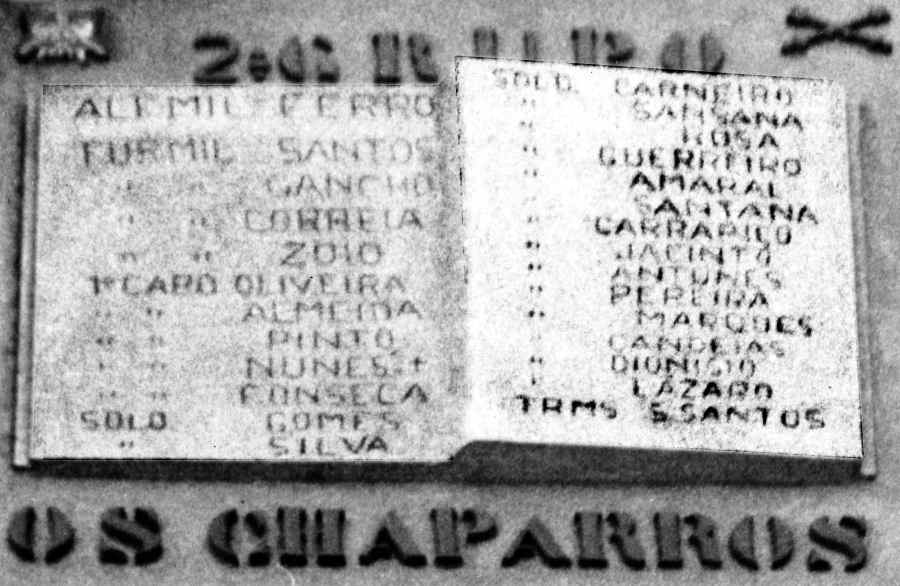 2º GRUPO
ALF MIL FERRO
FURMIL SANTOS
" " GANCHO
" " CORREIA
" " ZOIO
1º CABO OLIVEIRA
" " ALMEIDA
" " PINTO
" " NUNES +
" " FONSECA
SOLD GOMES
" SILVA
SOLD. CARNEIRO
" SANSANA
" ROSA
" GUERREIRO
" AMARAL
" SANTANA
" CARRAPIÇO
" JACINTO
" ANTUNES
" PEREIRA
" MARQUES
" CANDEIAS
" DIONISIO
" LÁZARO
TRMS SSANTOS
OS CHAPARROS